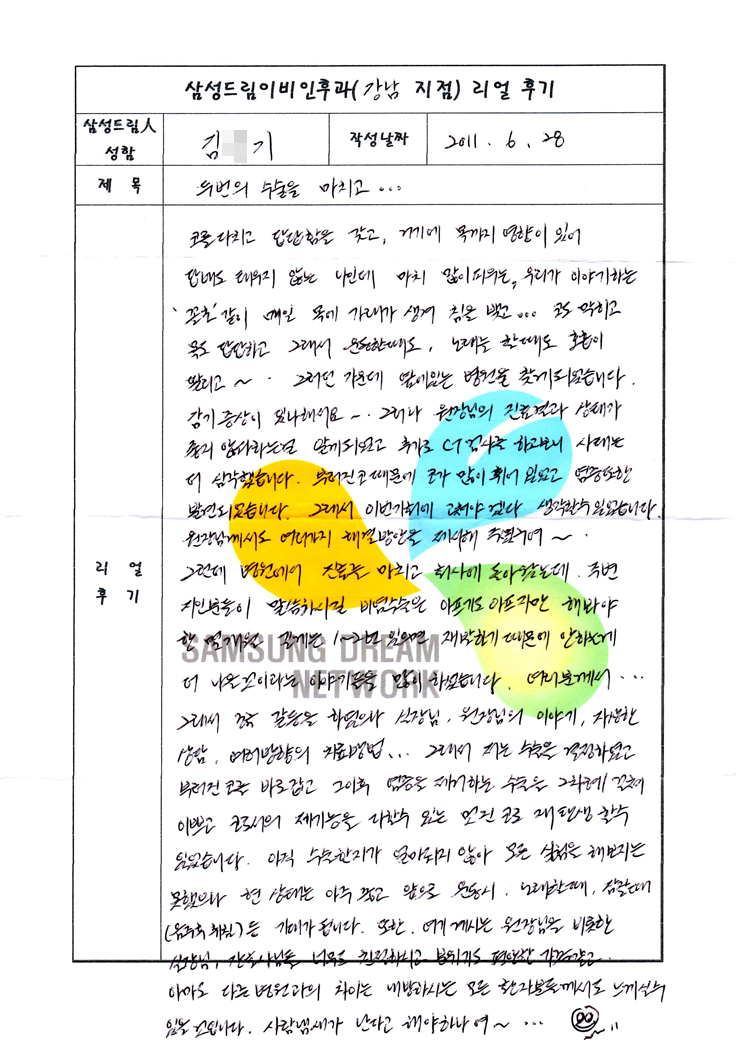 삼성드림이비인후과(강남 지점) 리얼 후기
삼성드림人 성함
김 기
작성날짜
2011. 6. 28
제 목
두번의 수술을 마치고...
리 얼 후 기
코를 다치고 답답함을 갖고, 거기에 목까지 영향이 있어
담배도 태우지 않는 나인데 마치 많이 피우는, 우리가 이야기하는
'꼴초'같이 매일 목에 가래가 생겨 침을 뱉고... 코도 막히고
목도 답답하고 그래서 운동할때도, 노래를 할때도 호흡이
딸리고~. 그러던 가운데 옆에있는 병원을 찾게되었습니다.
감기증상이 있나해서요~. 그러나 원장님의 진료결과 상태가
좋지 않다하는걸 알게되었고 추가로 CT검사를 하고보니 사태는
더 심각했습니다. 부러진코때문에 코가 많이 휘어 있었고 염증또한
발견되었습니다. 그래서 이번기회에 고쳐야 겠다 생각할수 있었습니다.
원장님께서도 여러가지 해결방안을 제시해 주셨구여~.
그런데 병원에서 진료를 마치고 회사에 돌아왔는데. 주변
지인분들이 말씀하시길 비염수술은 아프기도 아프지만 해봐야
몇개월 길게는 1~2년 있으면 재발하기 때문에 안하는게
더 나을것이라는 이야기들을 많이 하셨습니다. 여러분께서...
그래서 갈등을 하였으나 실장님, 원장님의 이야기, 자세한
상담, 여러방향의 치료방법... 그래서 저는 수술을 결정하였고
부러진 코를 바로잡고 그이후 염증을 제거하는 수술을
이쁘고 코로서의 제기능을 다할수 있는 멋진 코로 재탄생 할수
있었습니다. 아직 수술한지가 얼마되지 않아 모든 실험을 해보지는
못했으나 현 상태는 아주 좋고 앞으로 운동시, 노래할때, 잠잘때
(음주후 취침)등 기대가 됩니다. 또한, 여기 계시는 원장님을 비롯한
실장님, 간호사님들 너무도 친절하시고 분위기도 편안한 가족같고.
아마도 다른병원과의 차이는 내방하시는 모든 환자분들께서도 느끼실수
있을것입니다. 사람냄새가 난다고 해야하나여~...
SAMSUNG DREAM
NETWORK